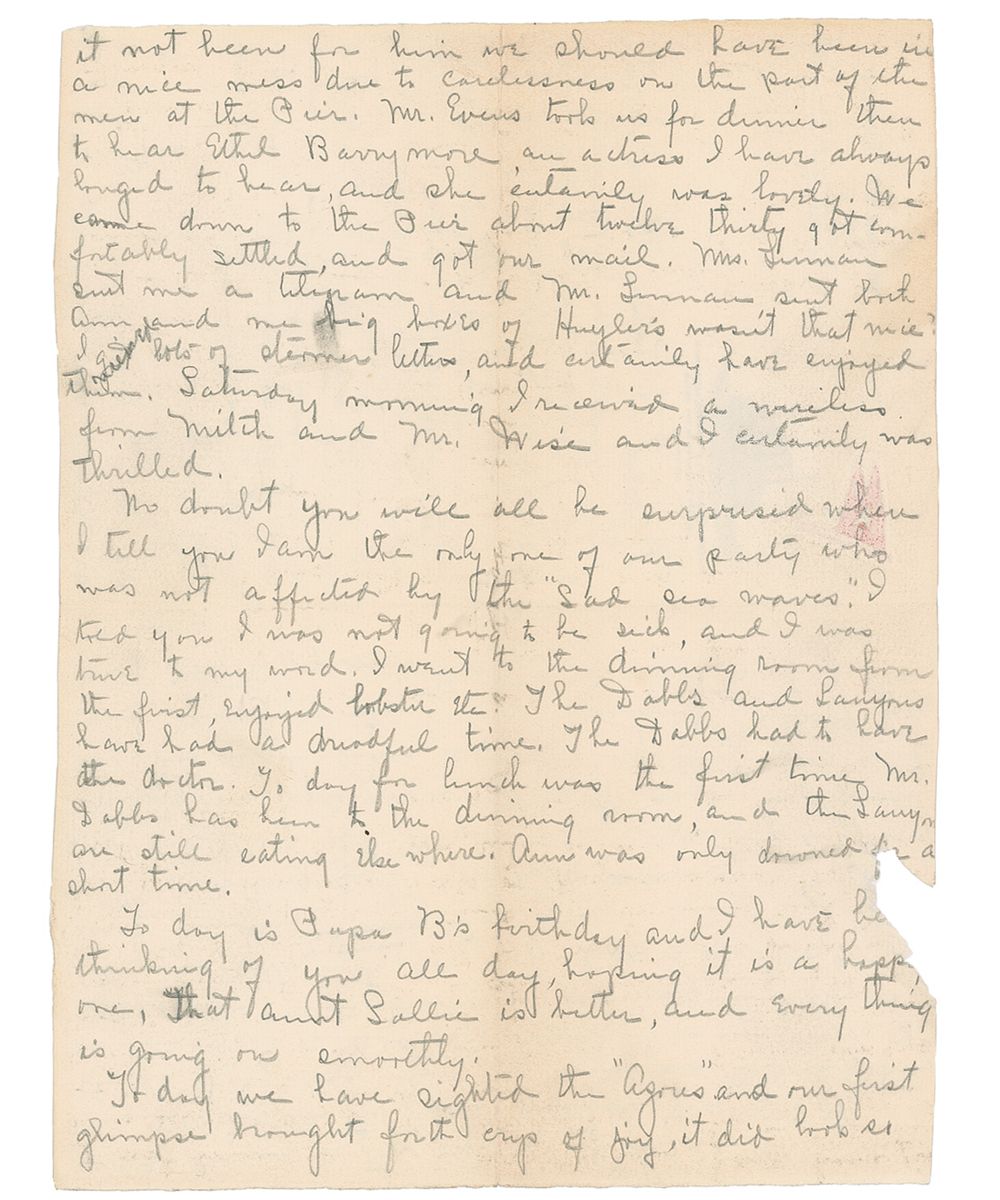 it not been for him we should have been in
a nice mess due to carelessness on the part of the
men at the Pier. Mr. Evens took us for dinner then
to hear Ethel Barrymore an actress I have always
longed to hear, and she certainly was lovely. We
came down to the Pier about twelve thirty got com-
fortably settled, and got our mail. Mrs. Linnan
sent me a telegram and Mr. Linnan sent both
Ann, and me big boxes of Huyler's wasn't that nice?
I received lots of steamer letters, and certainly have enjoyed
them. Saturday morning I received a wireless
from Mitch and Mr. Wise and I certainly was
thrilled.
No doubt you will all be surprised when
I tell you I am the only one of our party who
was not affected by the "Sad sea waves". I
told you I was not going to be sick, and I was
true to my word. I went to the dinning room from
the first, enjoyed lobster etc. The Dabbs and Lanyons
have had a dreadful time. The Dabbs had to have
the doctor. To day for lunch was the first time Mr.
Dabbs has been to the dinning room, and the Lanyon
are still eating else where. Ann was only downed for a
short time.
To day is Papa B's birthday and I have be
thinking of you all day, hoping it is a happ
one, that aunt Sallie is better, and every thing
is going on smoothly.
To day we have sighted the "Azores" and our first
glimpse brought forth crys of joy, it did look so